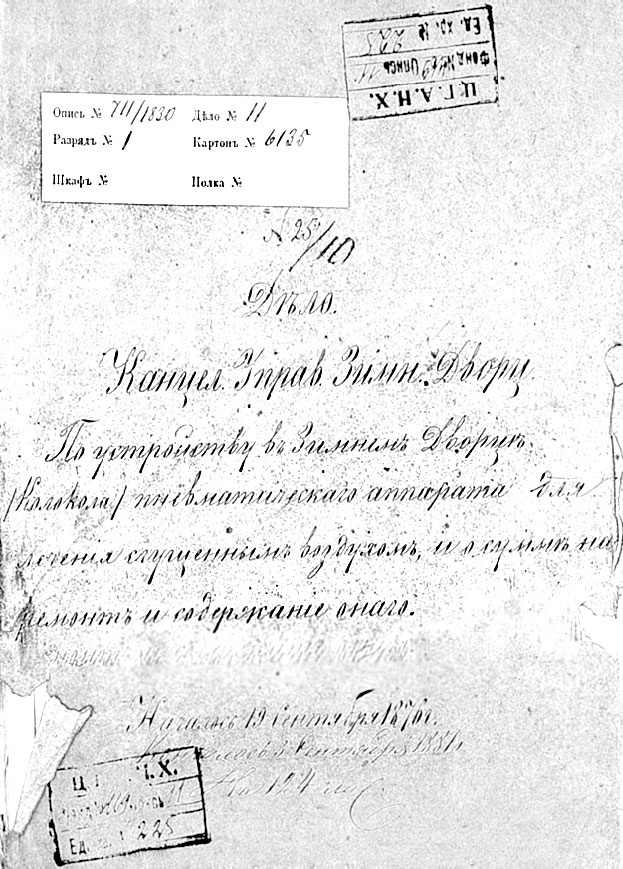 Ц.Г.А.Н.Х.
Фонд № 469 Опись 11
Ед. хр. № 225
Опись № VII/1830 Дѣло № 11
Разрядъ № 1 Картонъ № 6135
Шкафъ № Полка №
№ 25/10
Дѣло.
Канцел. Управ. Зимн. Дворц.
По устройству въ Зимнемъ Дворцѣ.
(Колокола) пневматическаго аппарата для
лѣченія сгущеннымъ воздухомъ, и о суммѣ на
ремонтъ и содержаніе онаго.
Началось 19 Сентября 1876 г.
Сентября 1881 г.
На 124
Х.
11
Ед. 225